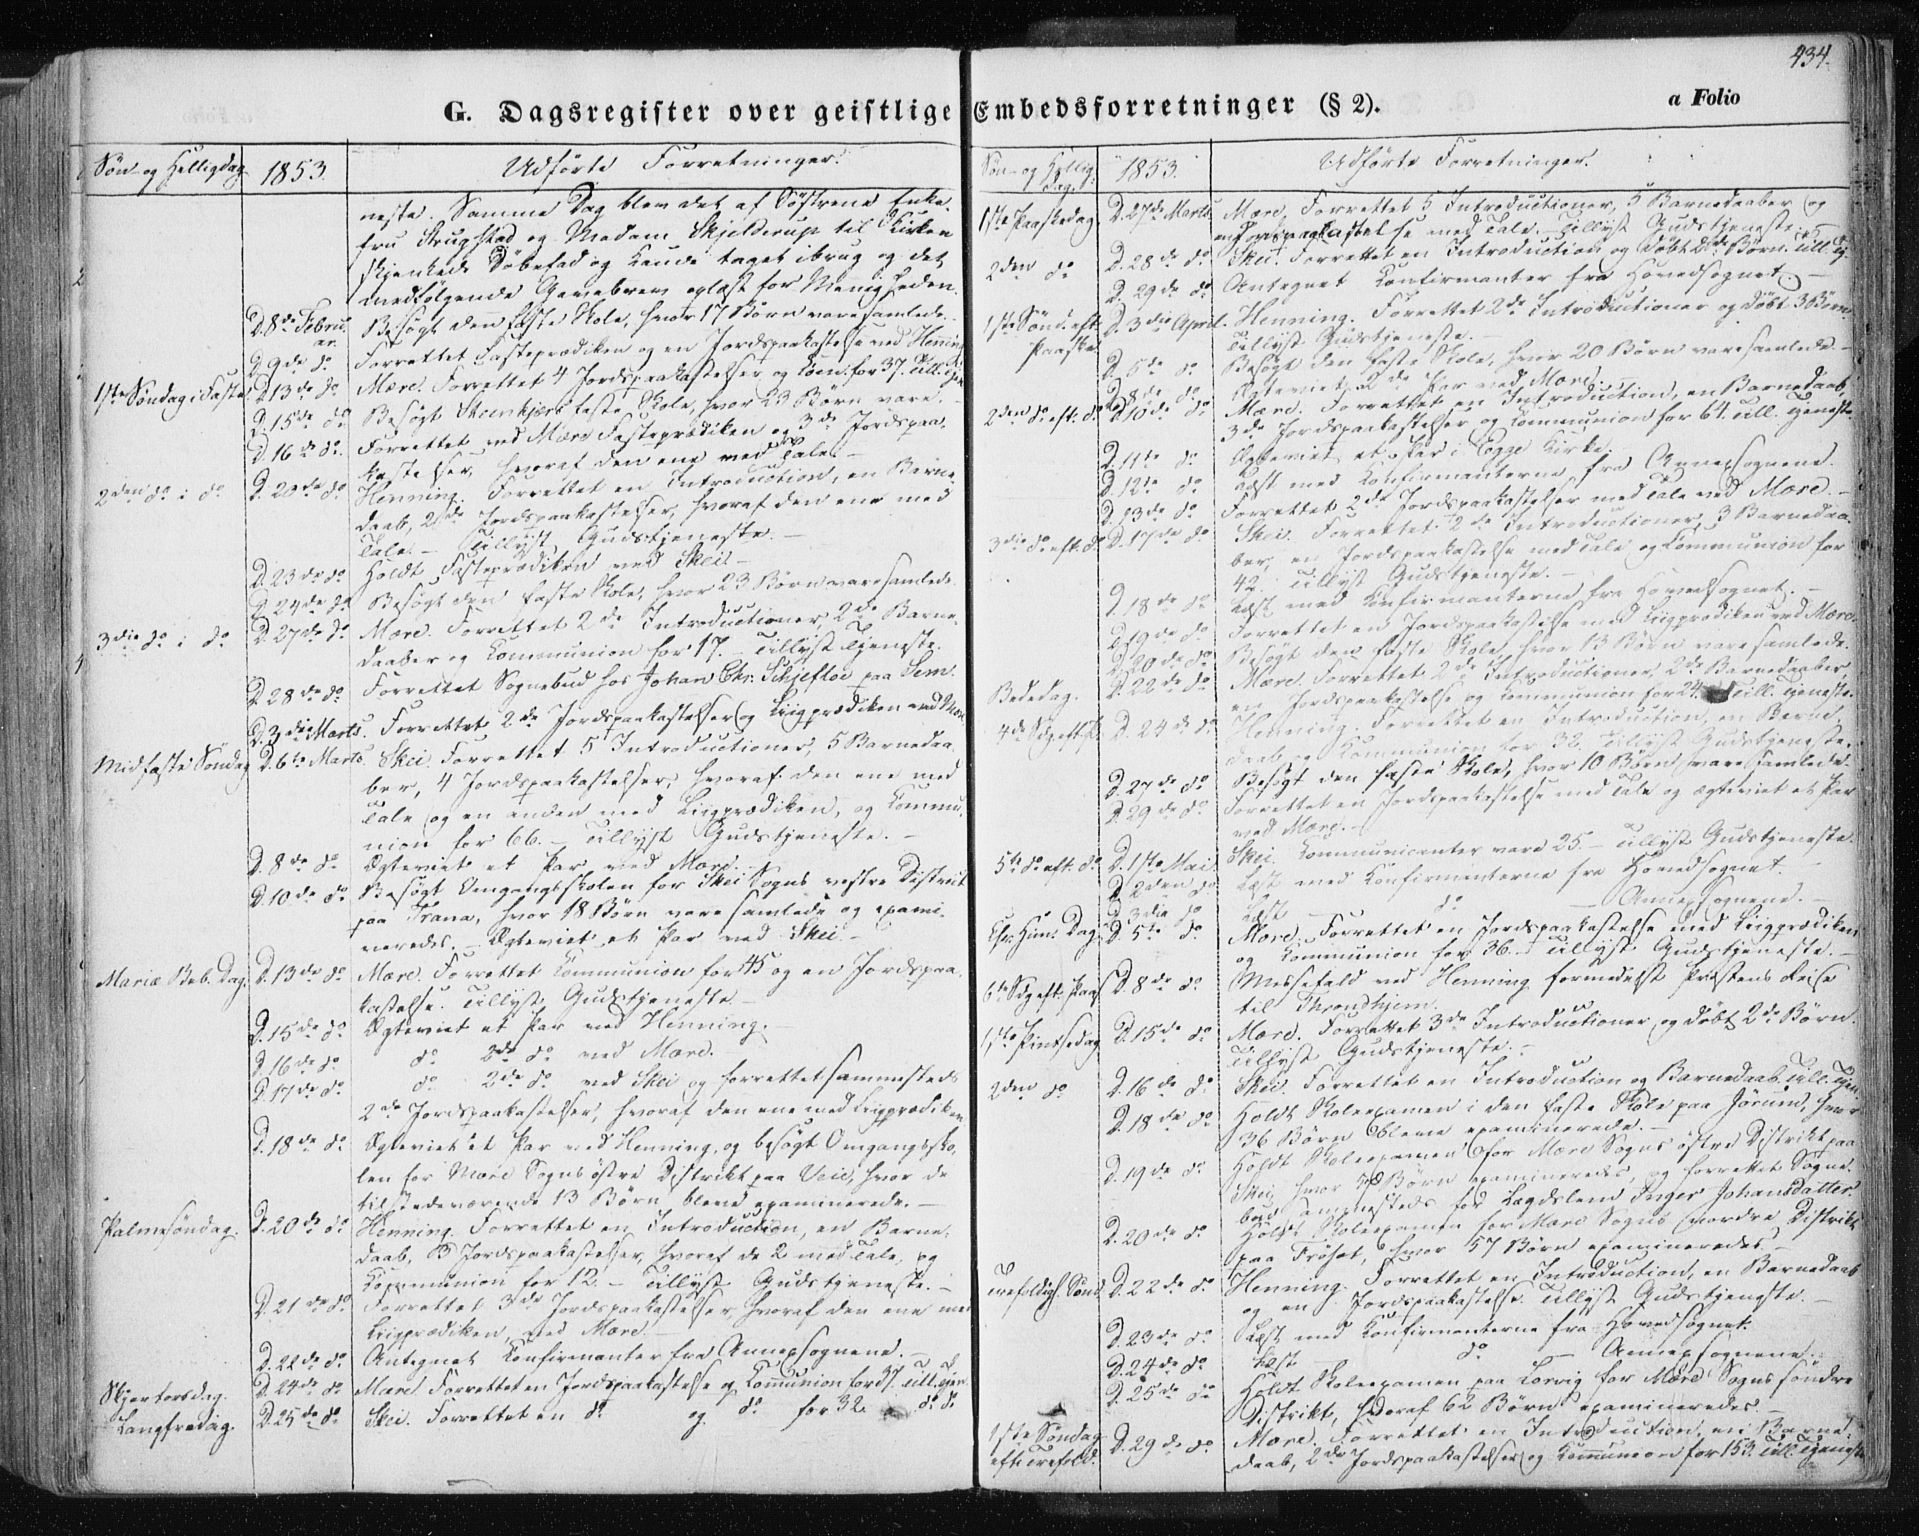 434.
G. Dagsregister over geistlige Embedsforretninger (§ 2).
a Folio
Søn- og Helligdag 1853. Udførte Forretninger.
neste. Samme Dag blev det af Søstrene Enke-
fru Brugstad og Madam Skjelderup til Kirken
skjenkede Døbefad og Kande taget ibrug og det
medfølgende Gavebrev oplæst for Menigheden.
D. 8de Febru-
ar Besøgt den faste Skole, hvor 17 Børn vare samlede.
D. 9de do Forrettet Fasteprædiken og en Jordspaakastelse ved Henning
1ste Søndag i Faste D. 13de do Mære. Forrettet 4 Jordspaakastelser og Com. for 37. Till. Tjen
D. 15de do Besøgt Steenkjers faste Skole, hvor 23 Børn vare.
D. 16de do Forrettet ved Mære Fasteprædiken og 3de Jordspaa-
kastelser, hvoraf den ene med Tale.-
2den do i do D. 20de do Henning. Forrettet en Introduction, en Barne-
daab, 2de Jordspaakastelser, hvoraf den ene med
Tale. - Tillyst Gudstjeneste. -
D. 23de do Holdt Fasteprædiken ved Skei -
D. 24de do Besøgt den faste Skole, hvor 23 Børn vare samlede.
3die do i do D. 27de do Mære. Forrettet 2de Introductioner, 2de Barne-
daaber og Kommunion for 17. - Tillyst Tjeneste.
D. 28de do Forrettet Sognebud hos Johan Chr. Schjefloe paa Sem.
D. 3die Marts. Forrettet 2de Jordspaakastelser og Liigprædiken ved Mære
Midfaste Søndag D. 6te Marts. Skei. Forrettet 5 Introductioner, 5 Barnedaa-
ber, 4 Jordspaakastelser, hvoraf den ene med
Tale og en anden med Liigprædiken, og Kommu-
nion for 66. - Tillyst Gudstjeneste. -
D. 8de do Ægteviet et Par ved Mære. -
D. 10de do Besøgt Omgangsskolen for Skei Sogns vestre Distrikt
paa Trana, hvor 18 Børn vare samlede og exami-
neredes. - Ægteviet et Par ved Skei -
Mariæ Beb. Dag. D. 13de do Mære. Forrettet Communion for 45 og en Jordspaa-
kastelse. Tillyst Gudstjeneste. -
D. 15de do Ægteviet et Par ved Henning.
D. 16de do do 2de do ved Mære. -
D. 17de do do 2de do ved Skei og forrettet sammesteds
2de Jordspaakastelser, hvoraf den ene med Liigprædiken
D. 18de do Ægteviet et Par ved Henning, og besøgt Omgangssko-
len for Mære Sogns østre Distrikt paa Veie, hvor de
tilstedeværende 13 Børn bleve examinerede. -
Palmesøndag. D. 20de do Henning. Forrettet en Introduction, en Barne-
daab, 3 Jordspaakastelser, hvoraf de 2 med Tale, og
Kommunion for 12. - Tillyst Gudstjeneste. -
D. 21de do Forrettet 3de Jordspaakastelser, hvoraf den ene med
Liigprædiken, ved Mære. -
D. 22de do Antegnet Konfirmanter fra Annexsognene. -
Skjertorsdag. D. 24de do Mære. Forrettet en Jordspaakastelse og Communion for 37. Till. Tjen.
Langfredag. D. 25de do Skei. Forrettet en do og do for 32. do do
Søn- og Hellig-
dag. 1853. Udførte Forretninger.
1ste Paaskedag. D. 27de Marts. Mære. Forrettet 5 Introductioner, 5 Barnedaaber og
en Jordspaakastelse med Tale. - Tillyst Gudstjeneste. -
2den do D. 28de do Skei. Forrettet en Introduction og døbt 2de Børn. Till. Tj.
D. 29de do Antegnet Konfirmanter fra Hovedsognet. -
1ste Sønd. eft.
Paaske D. 3die April. Henning. Forrettet 2de Introductioner og døbt 3 Børn.
Tillyst Gudstjeneste. -
D. 6te do Besøgt den faste Skole, hvor 20 Børn vare samlede. -
D. 8de do Ægteviet 2de Par ved Mære. -
2den do eft. do D. 10de do Mære. Forrettet en Introduction, en Barnedaab,
3de Jordspaakastelser og Communion for 64. Till. Tjeneste.
D. 11te do Ægteviet et Par i Egge Kirke.
D. 12te do Læst med Konfirmanterne fra Annexsognene.
D. 13de do Forrettet 2de Jordspaakastelser med Tale ved Mære. -
3die do eft. do D. 17de do Skei. Forrettet 2de Introductioner, 3 Barnedaa-
ber, en Jordspaakastelse med Tale og Kommunion for
42. Tillyst Gudstjeneste. -
D. 18de do Læst med Konfirmanterne fra Hovedsognet. -
D. 19de do Forrettet en Jordspaakastelse med Liigprædiken ved Mære.
D. 20de do Besøgt den faste Skole, hvor 13 Børn vare samlede.
Bededag. D. 22de do Mære. Forrettet 2de Introductioner, 2de Barnedaaber,
en Jordspaakastelse og Communion for 24. Till. Tjeneste.
4de Sdg eft. P. D. 24de do Henning. Forrettet en Introduction, en Barne-
daab og Kommunion for 32. Tillyst Gudstjeneste.
D. 27de do Besøgt den faste Skole, hvor 10 Børn vare samlede.
D. 29de do Forrettet en Jordspaakastelse med Tale og ægteviet et Par
ved Mære. -
5te do eft. do D. 1ste Mai Skei. Kommunicanter vare 25. - Tillyst Gudstjeneste.
D. 2den do Læst med Konfirmanterne fra Hovedsognet. -
D. 3die do Læst do - Annexsognene. -
Chr. Him. Dag D. 5te do Mære. Forrettet en Jordspaakastelse med Liigprædiken
og Kommunion for 36. - Tillyst Gudstjeneste. -
6te Sdg eft. Paas. D. 8de do Messefald ved Henning formedelst Præstens Reise
til Throndhjem.
1ste Pintsedag D. 15de do Mære. Forrettet 3de Introductioner og døbt 2de Børn.
Tillyst Gudstjeneste. -
2den do D. 16de do Skei. Forrettet en Introduction og Barnedaab. Till. Tjen.
D. 18de do Holdt Skoleexamen i den faste Skole paa Jørum, hvor
36 Børn bleve examinerede. -
D. 19de do Holdt Skoleexamen for Mære Sogns østre Distrikt paa
Skei, hvor Børn examineredes, og forrettet Sogne-
bud sammesteds for Lægdslem Inger Johansdatter.
D. 20de do Holdt Skoleexamen for Mære Sogns nordre Distrikt
paa Frøset, hvor 57 Børn examineredes. -
Trefoldigh. Sønd. D. 22de do Henning. Forrettet en Introduction, en Barnedaab
og en Jordspaakastelse. Tillyst Gudstjeneste. -
D. 23de do Læst med Konfirmanterne fra Hovedsognet.
D. 24de do Læst do - Annexsognene. -
D. 25de do Holdt Skoleexamen paa Lorvig for Mære Sogns søndre
Distrikt, hvoraf 62 Børn examineredes. -
1ste Søndag
efter Trefold. D. 29de do Mære. Forrettet en Introduction, en Barne-
daab, 2de Jordspaakastelser og Kommunion for 153. Till. Tjeneste